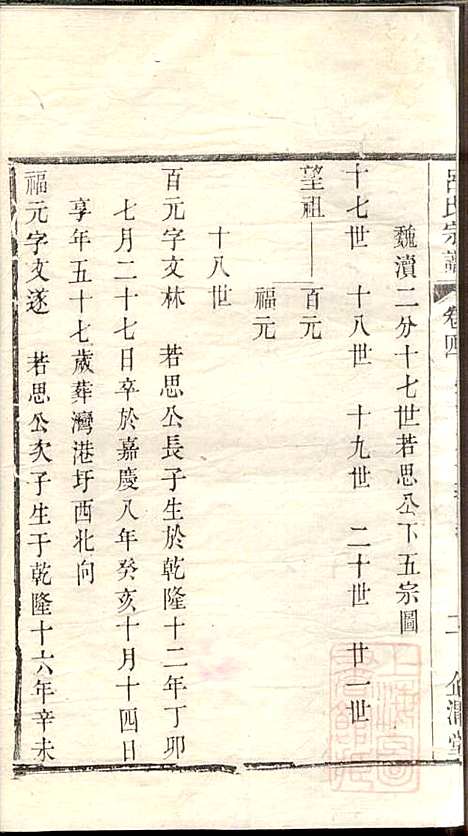 呂氏宗譜 卷四 二
魏瀆二分十七世若思公下五宗圖
十七世 十八世 十九世 二十世 廿一世
望祖 百元
福元
十八世
百元字文林 若思公長子生於乾隆十二年丁卯
七月二十七日卒於嘉慶八年癸亥十月十四日
享年五十七歲葬灣港圩西北向
福元字文遂 若思公次子生于乾隆十六年辛未